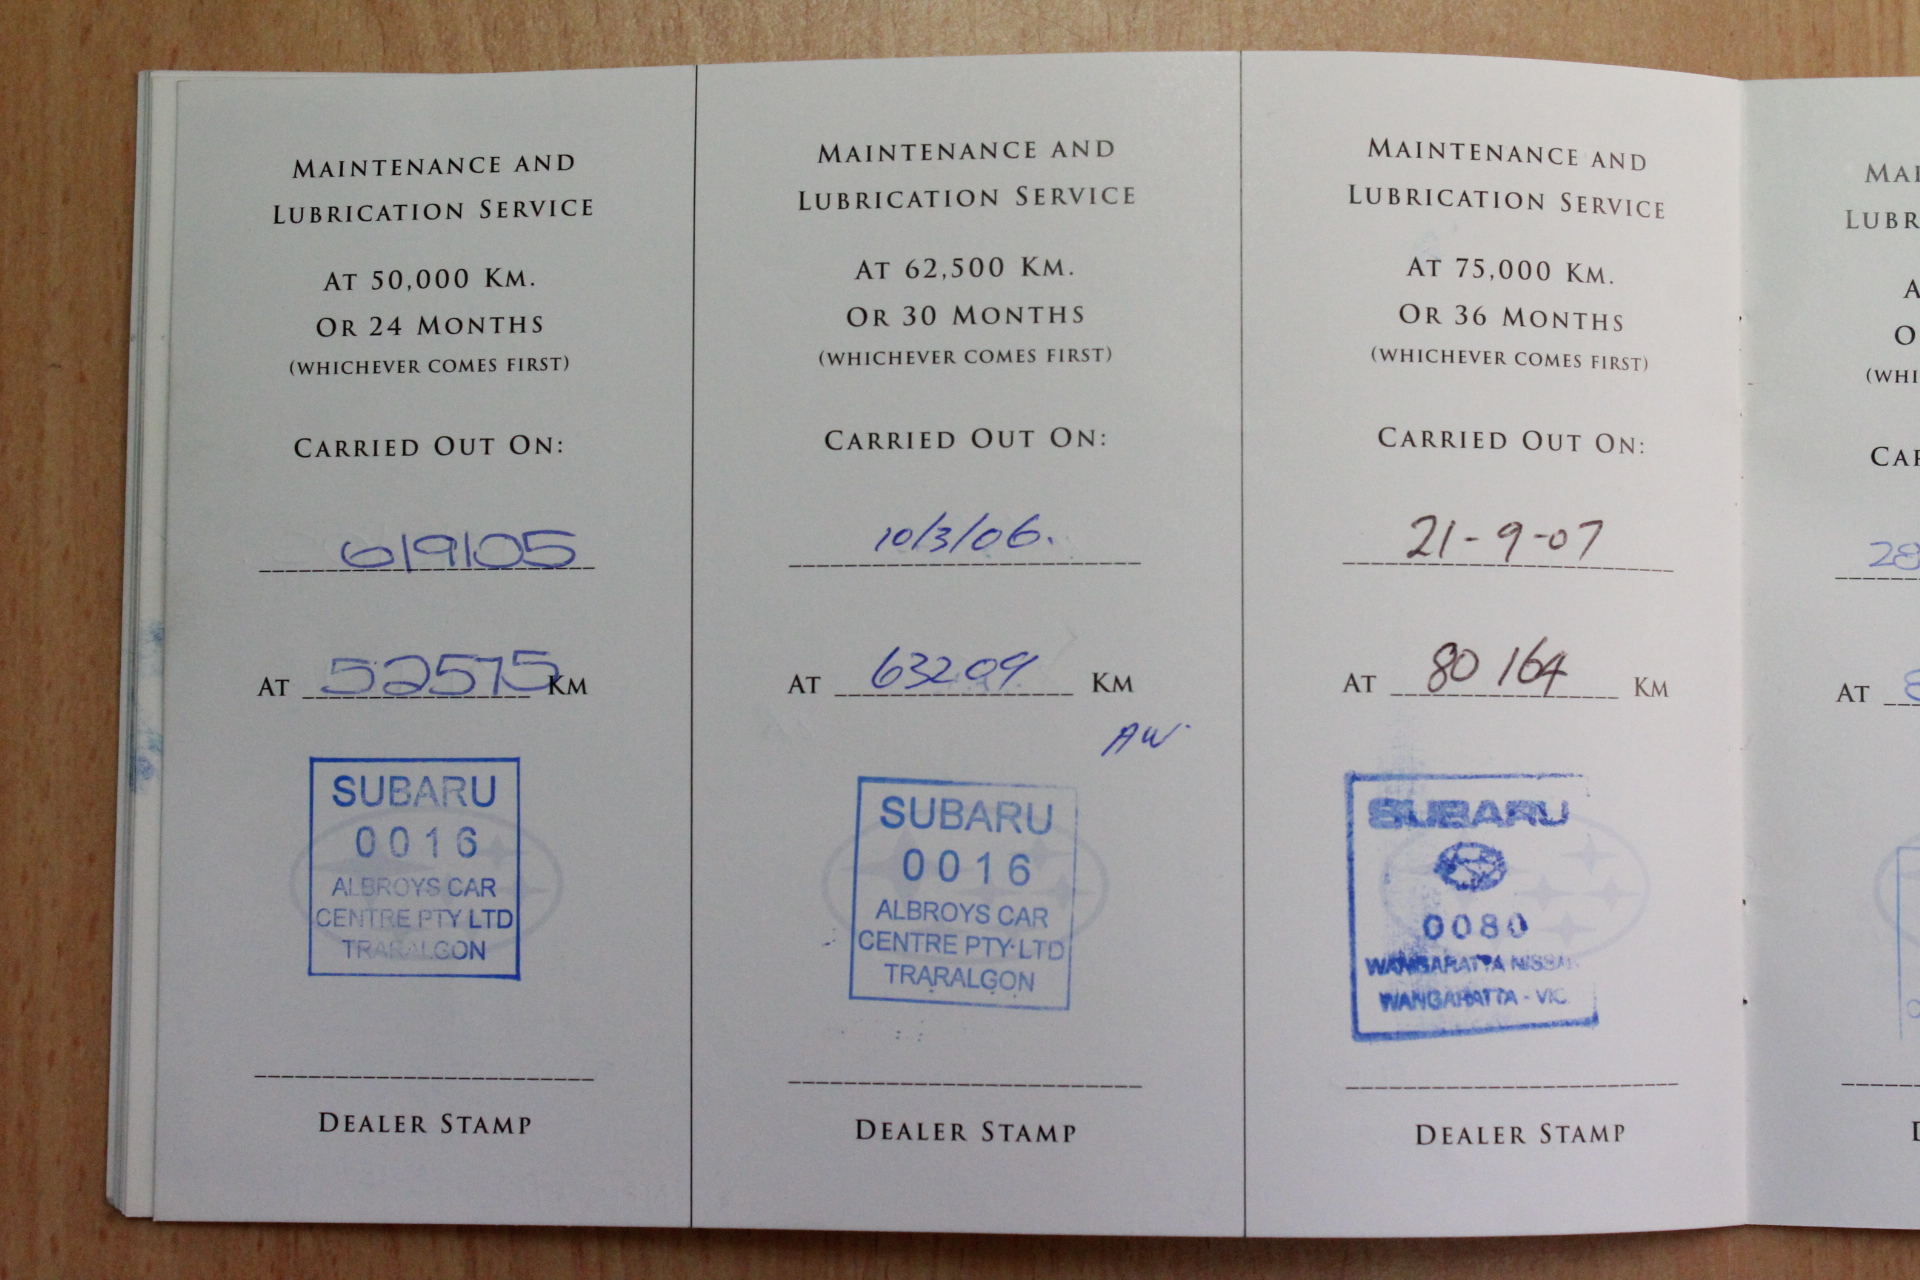 MAINTENANCE AND
LUBRICATION SERVICE
AT 50,000 KM.
OR 24 MONTHS
(WHICHEVER COMES FIRST)
CARRIED OUT ON:
6/9/05
AT 52575 KM
SUBARU
0016
ALBROYS CAR
CENTRE PTY LTD
TRARALGON
DEALER STAMP
MAINTENANCE AND
LUBRICATION SERVICE
AT 62,500 KM.
OR 30 MONTHS
(WHICHEVER COMES FIRST)
CARRIED OUT ON:
10/3/06.
AT 63209 KM
AW
SUBARU
0016
ALBROYS CAR
CENTRE PTY LTD
TRARALGON
DEALER STAMP
MAINTENANCE AND
LUBRICATION SERVICE
AT 75,000 KM.
OR 36 MONTHS
(WHICHEVER COMES FIRST)
CARRIED OUT ON:
21-9-07
AT 80 164 KM
SUBARU
0080
WANGARATTA NISSAN
WANGARATTA - VIC
DEALER STAMP
28
AT